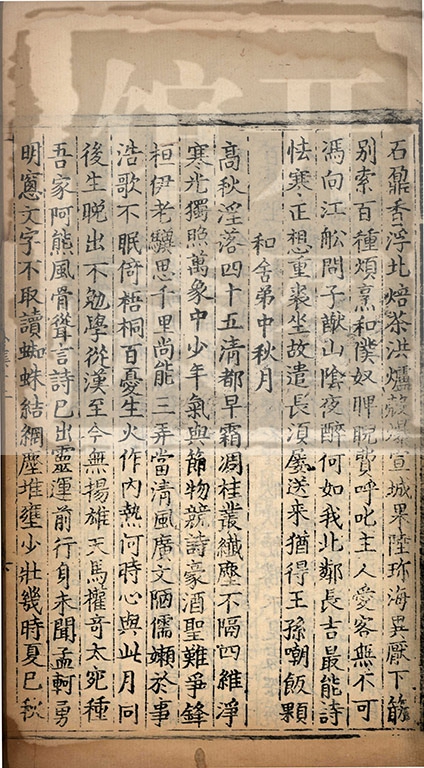 石鼎香浮北焙茶洪爐殼爆宣城果陸珍海異厭下筯
別索百種煩烹和僕奴睥睨費呼叱主人愛客無不可
馮向江船問子猷山陰夜醉何如我北鄰長吉最能詩
怯寒正想重裘坐故遣長須屢送来猶得王孫嘲飯顆
和舍弟中秋月
高秋淫落四十五清都早霜凋桂叢纖塵不隔四維淨
寒光獨照萬象中少年氣與節物競詩豪酒聖難爭鋒
桓伊老驥思千里尚能三弄當清風廣文陋儒嬾於事
浩歌不眠倚梧桐百憂生火作內熱何時心與此月同
後生晚出不勉學從漢至今無揚雄天馬權奇太宛種
吾家阿熊風骨聳言詩已出靈運前行身未聞孟軻勇
明窻文字不取讀蜘蛛結網塵堆壅少壯幾時夏已秋